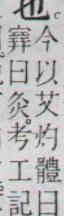 也。
今以艾灼體曰
釋曰灸。考工記